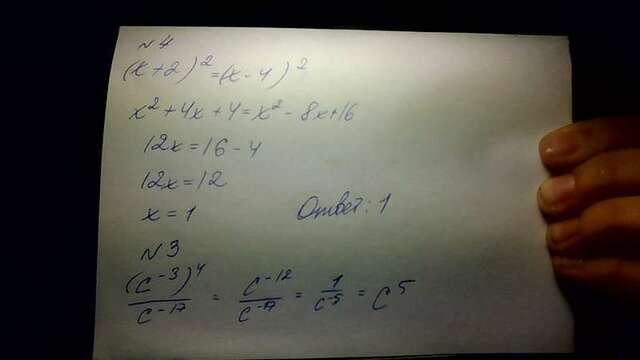 N4
(x+2)²=(x-4)²
x²+4x+4=x²-8x+16
12x=16-4
12x=12
x=1 Ответ: 1
N3
(c⁻³)⁴/c⁻¹⁷ = c⁻¹²/c⁻¹⁷ = 1/c⁻⁵ = c⁵